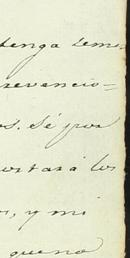 tenga temo
revencio=
os. Sé por
ortará los
s, y mi
que no